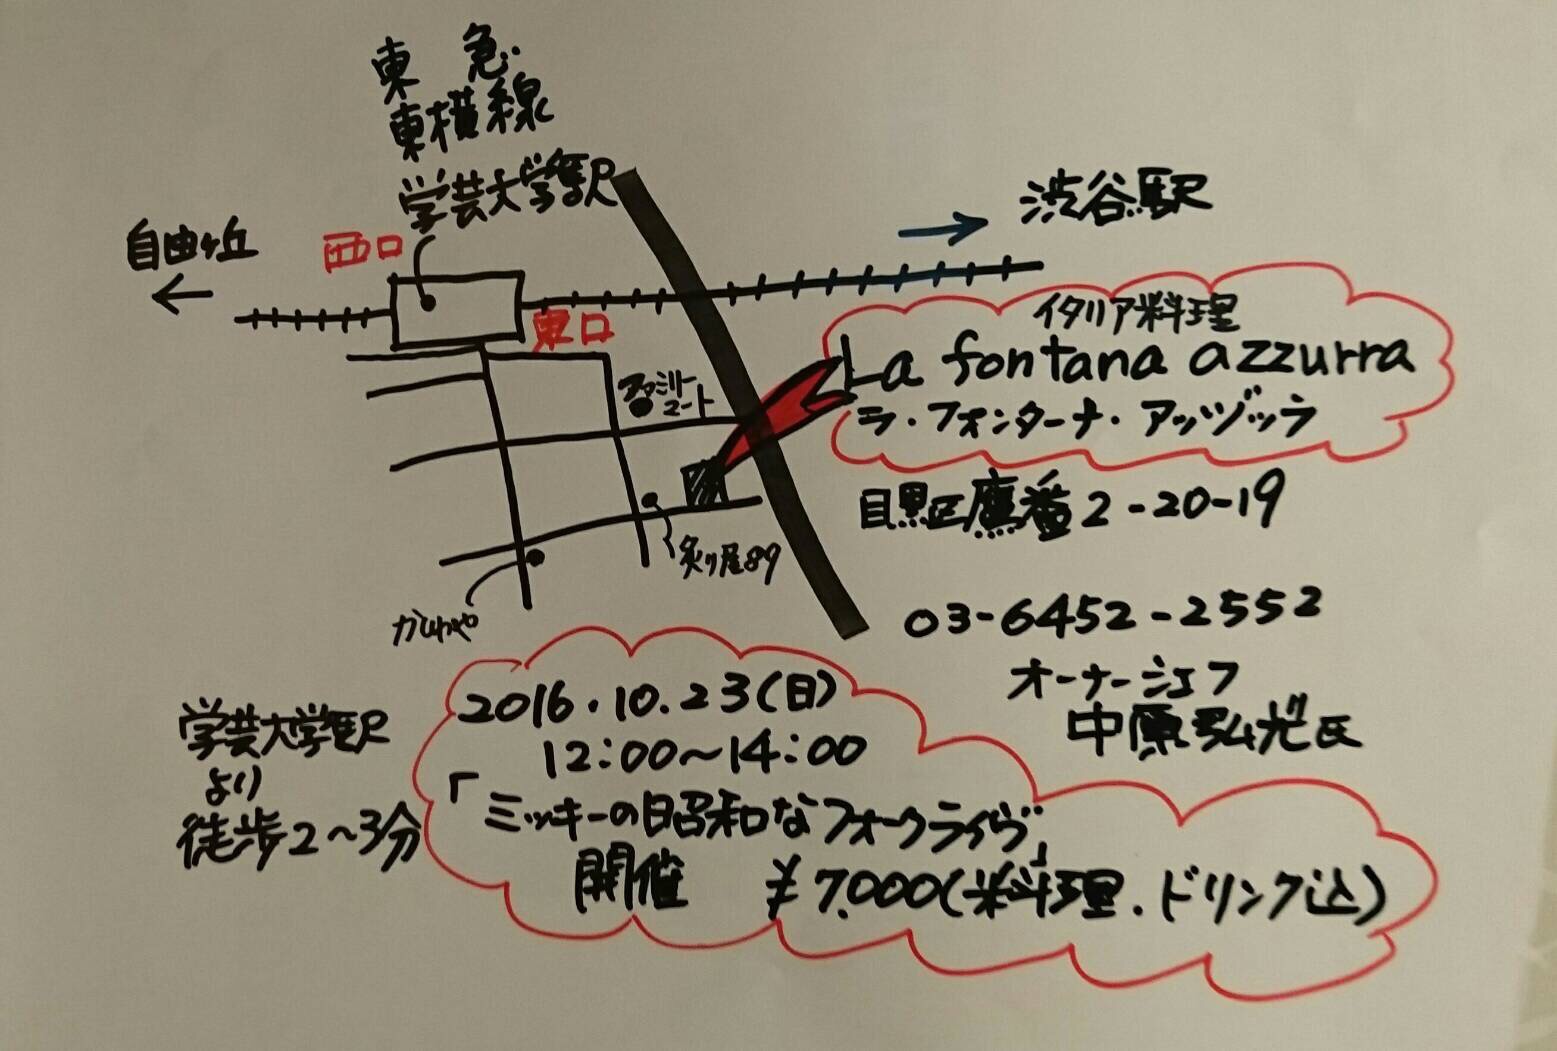 東 急
東横線
学芸大学駅
渋谷駅
自由ヶ丘
西口
東口
イタリア料理
La fontana azzurra
ラ・フォンターナ・アッズッラ
ファミリー
マート
目黒区鷹番2-20-19
炙り屋89
かしわや
03-6452-2552
オーナーシェフ
中原弘光氏
学芸大学駅
より
徒歩2~3分
2016.10.23(日)
12:00~14:00
「ミッキーの昭和なフォークライヴ」
開催 ¥7.000(料理.ドリンク込)